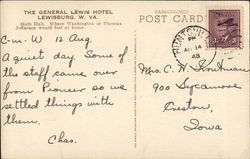 THE GENERAL LEWIS HOTEL
LEWISBURG, W. VA.
Main Hall. Where Washington or Thomas
Jefferson would feel at home.
HANDCOLORED
POST CARD
C-m. W 12 Aug.
A quiet day. Some of
the staff came over
from Pioneer so we
settled things with
them.
Chas.
PM
14
48
Mrs. C. H.
900 Sycamore
Creston,
Iowa